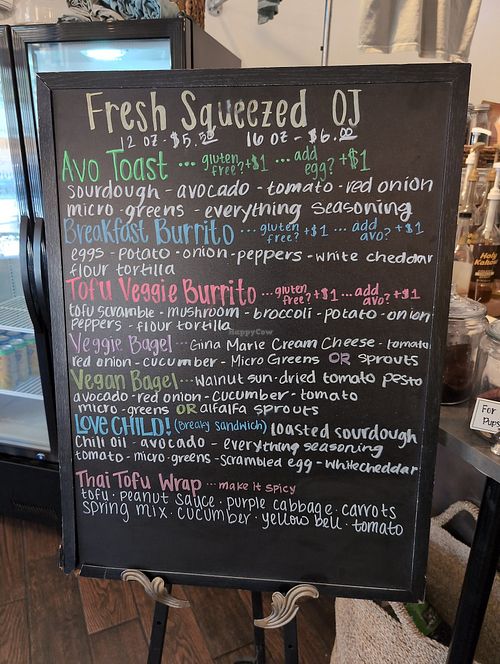 Fresh Squeezed OJ
12 oz - $5.50 16 oz - $6.00
Avo Toast ... gluten free? +$1 ... add egg? +$1
sourdough - avocado - tomato - red onion
micro-greens - everything seasoning
Breakfast Burrito ... gluten free? +$1 ... add avo? +$1
eggs - potato - onion - peppers - white cheddar
flour tortilla
Tofu Veggie Burrito ... gluten free? +$1 ... add avo? +$1
tofu scramble - mushroom - broccoli - potato - onion
peppers - flour tortilla
Veggie Bagel ... Gina Marie Cream Cheese - tomato
red onion - cucumber - Micro Greens OR sprouts
Vegan Bagel ... Walnut sun-dried tomato pesto
avocado - red onion - cucumber - tomato
micro-greens OR alfalfa sprouts
LOVE CHILD! (Breaky Sandwich) toasted sourdough
chili oil - avocado - everything seasoning
tomato - micro-greens - scrambled egg - white cheddar
Thai Tofu Wrap ... make it spicy
tofu · peanut sauce · purple cabbage · carrots
spring mix · cucumber · yellow bell · tomato
HappyCow
Holy
Kakow
For
Pups